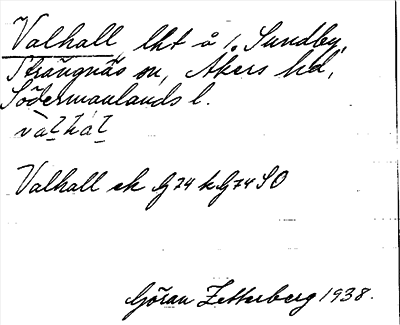 Valhall, lht å 1/ Sundby,
Strängnäs sn, Åkers hd,
Södermanlands l.
Valhall ek G74 k G74 SO
Göran Zetterberg 1938.